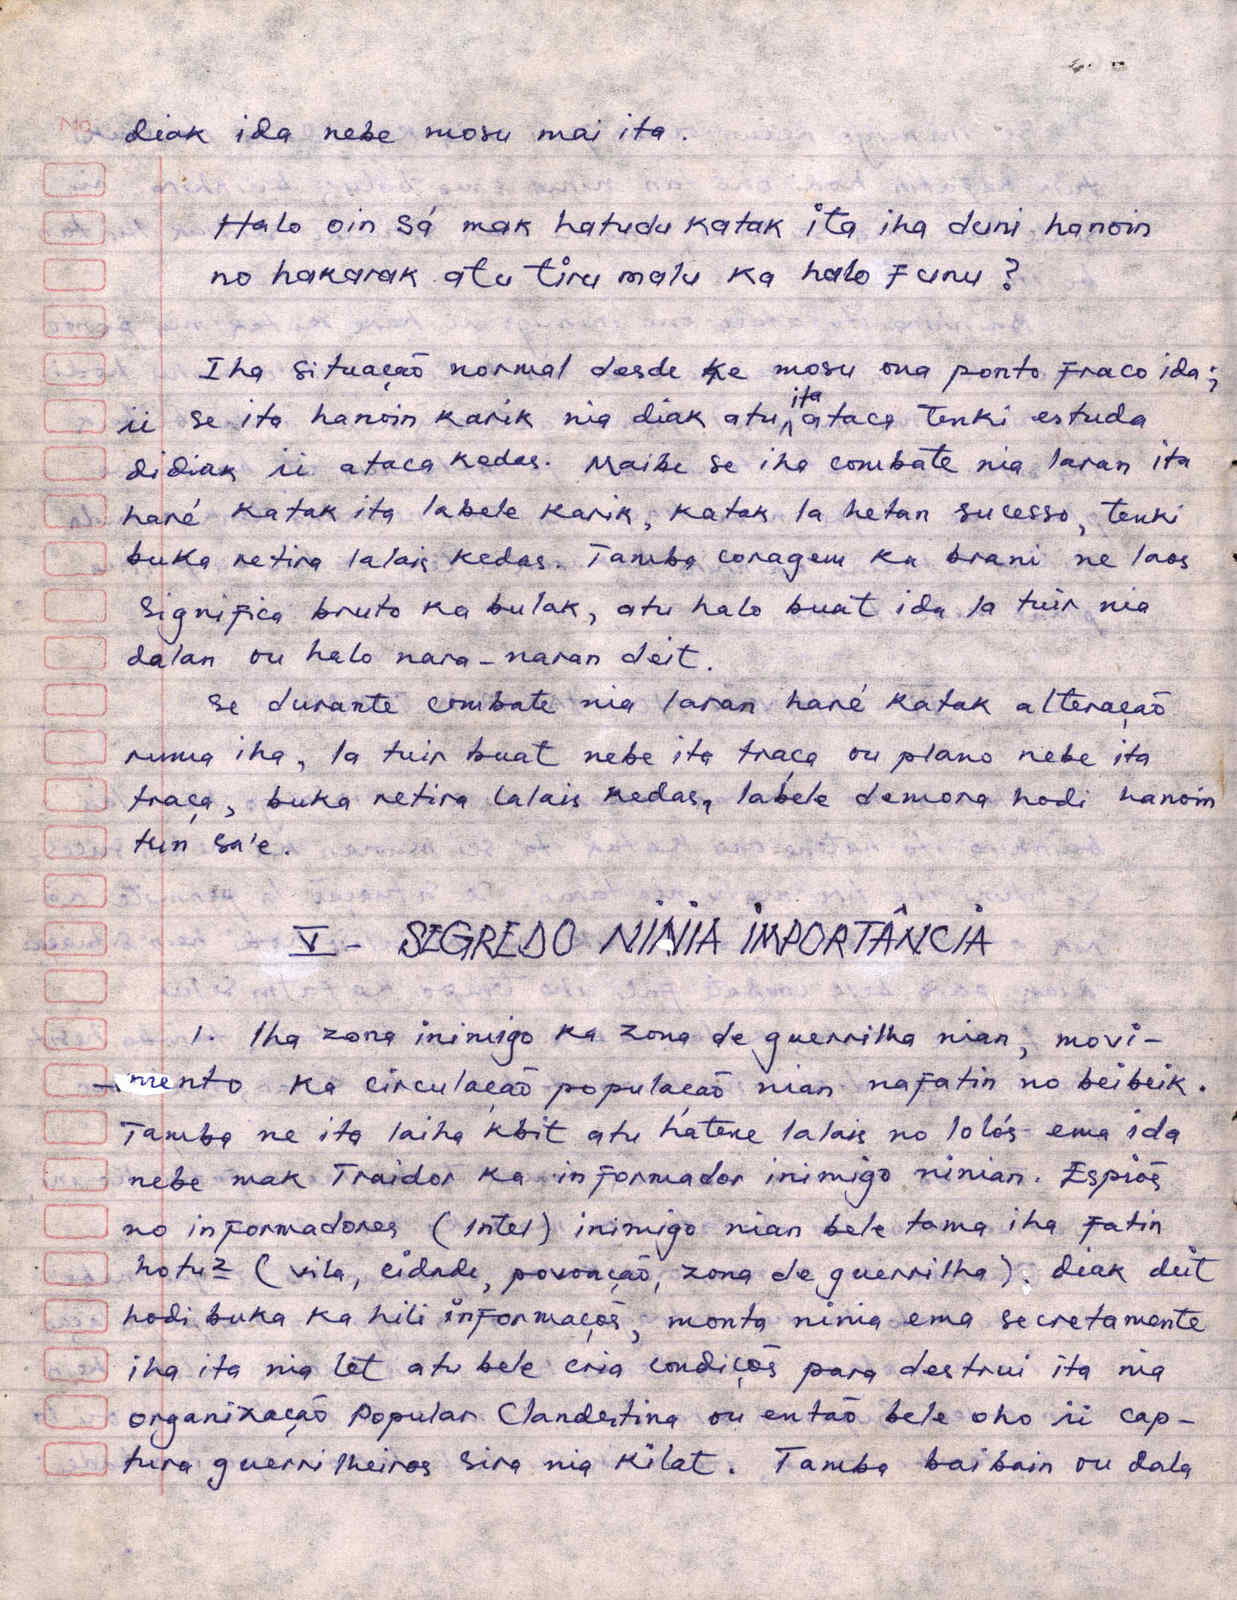 diak ida nebe mosu mai ita.
Halo oin sá mak hatudu katak ita iha duni hanoin
no hakarak atu tiru malu ka halo funu?
Iha situação normal desde ke mosu ona ponto fraco ida;
ii se ita hanoin karik nia diak atu ita ataca tenki estuda
didiak ii ataca kedas. Maibe se iha combate nia laran ita
haré katak ita labele karik, katak la hetan sucesso, tenki
buka retira lalais kedas. Tamba coragem ka brani ne laos
significa bruto ka bulak, atu halo buat ida la tuir nia
dalan ou halo nara-naran deit.
Se durante combate nia laran haré katak alteração
ruma iha, la tuir buat nebe ita traça ou plano nebe ita
traça, buka retira lalais kedas, labele demora hodi hanoin
tun sa'e.
V - SEGREDO NINIA IMPORTÂNCIA
1. Iha zona inimigo ka zona de guerrilha nian, movi-
-mento ka circulação população nian nafatin no beibeik.
Tamba ne ita laiha kbit atu hatene lalais no lolós ema ida
nebe mak Traidor ka informador inimigo ninian. Espiõs
no informadores (Intel) inimigo nian bele tama iha fatin
hotu2 (vila, cidade, povoação, zona de guerrilha). diak deit
hodi buka ka hili informaçõs, monta ninia ema secretamente
iha ita nia let atu bele cria condiçõs para destrui ita nia
organização Popular Clandestina ou então bele oho ii cap-
tura guerrilheiros sira nia kilat. Tamba baibain ou dala